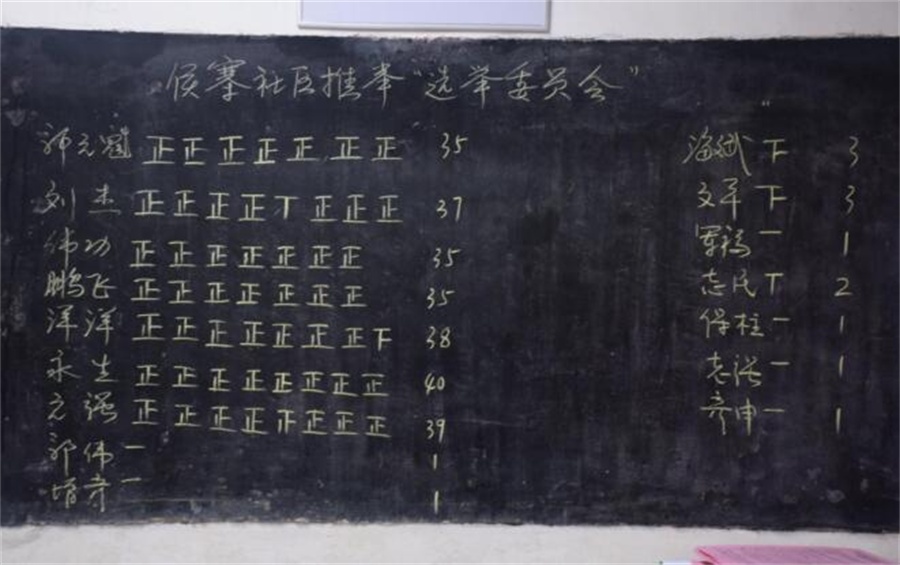 侯寨社区推举"选举委员会"
郭元 正正正正正正正 35
刘杰 正正正正丅正正正 37
伟功 正正正正正正正 35
鹏飞 正正正正正正正 35
洋洋 正正正正正正正下 38
永生 正正正正正正正正 40
元强 正正正正正正正正 39
郭伟 一 1
增奇 一 1
海斌 下 3
文平 下 3
军福 一 1
志民 丅 2
保柱 一 1
老强 一 1
彦申 一 1